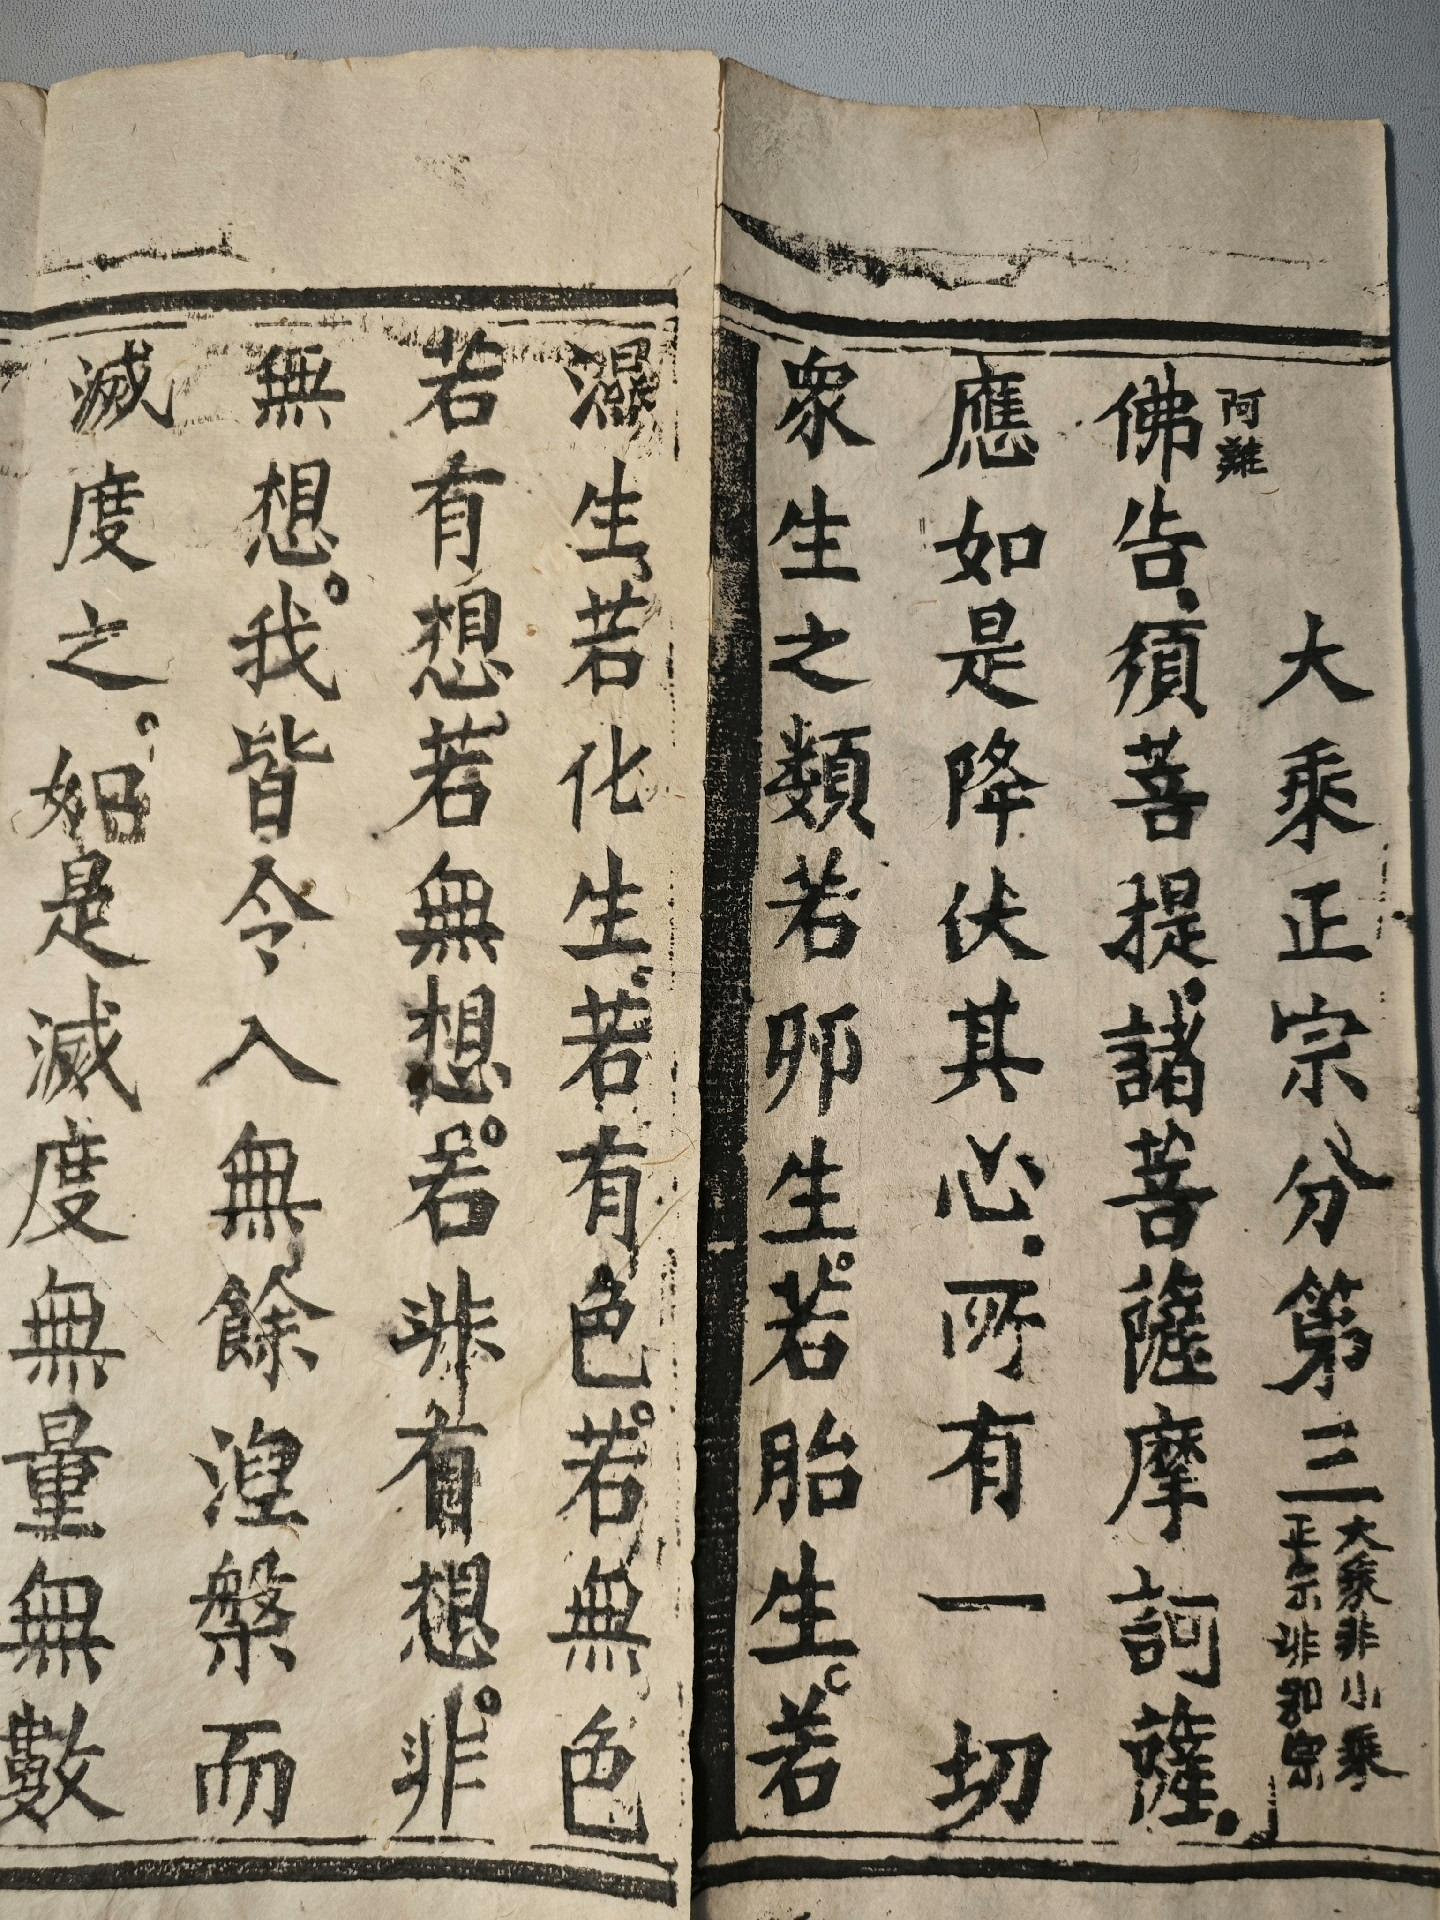 大乘正宗分第三
大乘非小乘
正宗非邪宗
阿難
佛告.須菩提.諸菩薩摩訶薩.
應如是降伏其心.所有一切
衆生之類若卵生。若胎生。若
濕生若化生。若有色。若無色
若有想若無想。若非有想。非
無想。我皆令入無餘涅槃而
滅度之。如是滅度無量無數